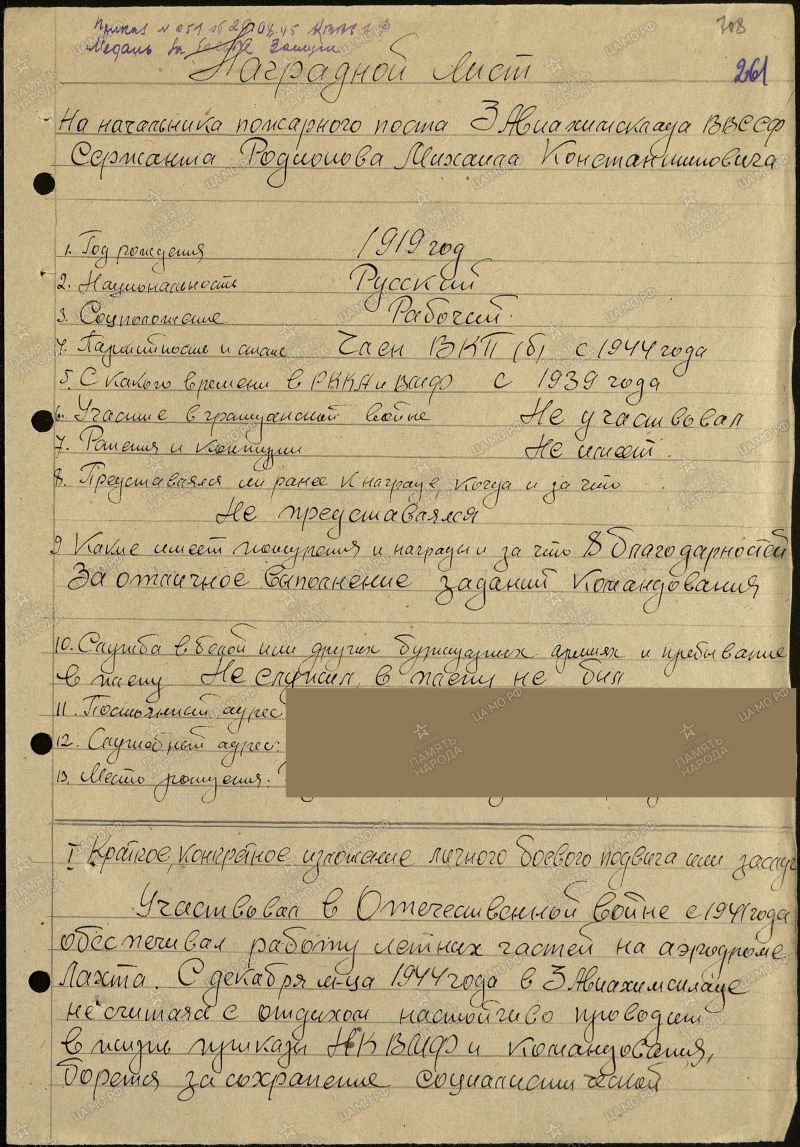 Приказ № 051 от 29.08.45
Медаль За боевые Заслуги
708
261
Наградной лист
На начальника пожарного поста 3 Авиахимсклада ВВССФ
Сержанта Родионова Михаила Константиновича
1. Год рождения 1919 год
2. Национальность Русский
3. Соцположение Рабочий.
4. Партийность и стаж Член ВКП(б) с 1944 года
5. С какого времени в РККА и ВМФ с 1939 года
6. Участие в гражданской войне Не участвовал
7. Ранения и контузии Не имеет.
8. Представлялся ли ранее к награде, когда и за что
Не представлялся
9 Какие имеет поощрения и награды и за что 8 благодарностей
За отличное выполнение заданий командования
10. Служба в белой или других буржуазных армиях и пребывание
в плену Не служил, в плену не был
11. Постоянный адрес
12. Служебный адрес:
13. Место рождения:
I Краткое, конкретное изложение личного боевого подвига или заслуг
Участвовал в Отечественной войне с 1941 года
обеспечивал работу летных частей на аэродроме
Лахта. С декабря м-ца 1944 года в 3 Авиахимскладе
не считаяс с отдыхом настойчиво проводит
в жизнь приказы НК ВМФ и командования,
борется за сохранение социалистической